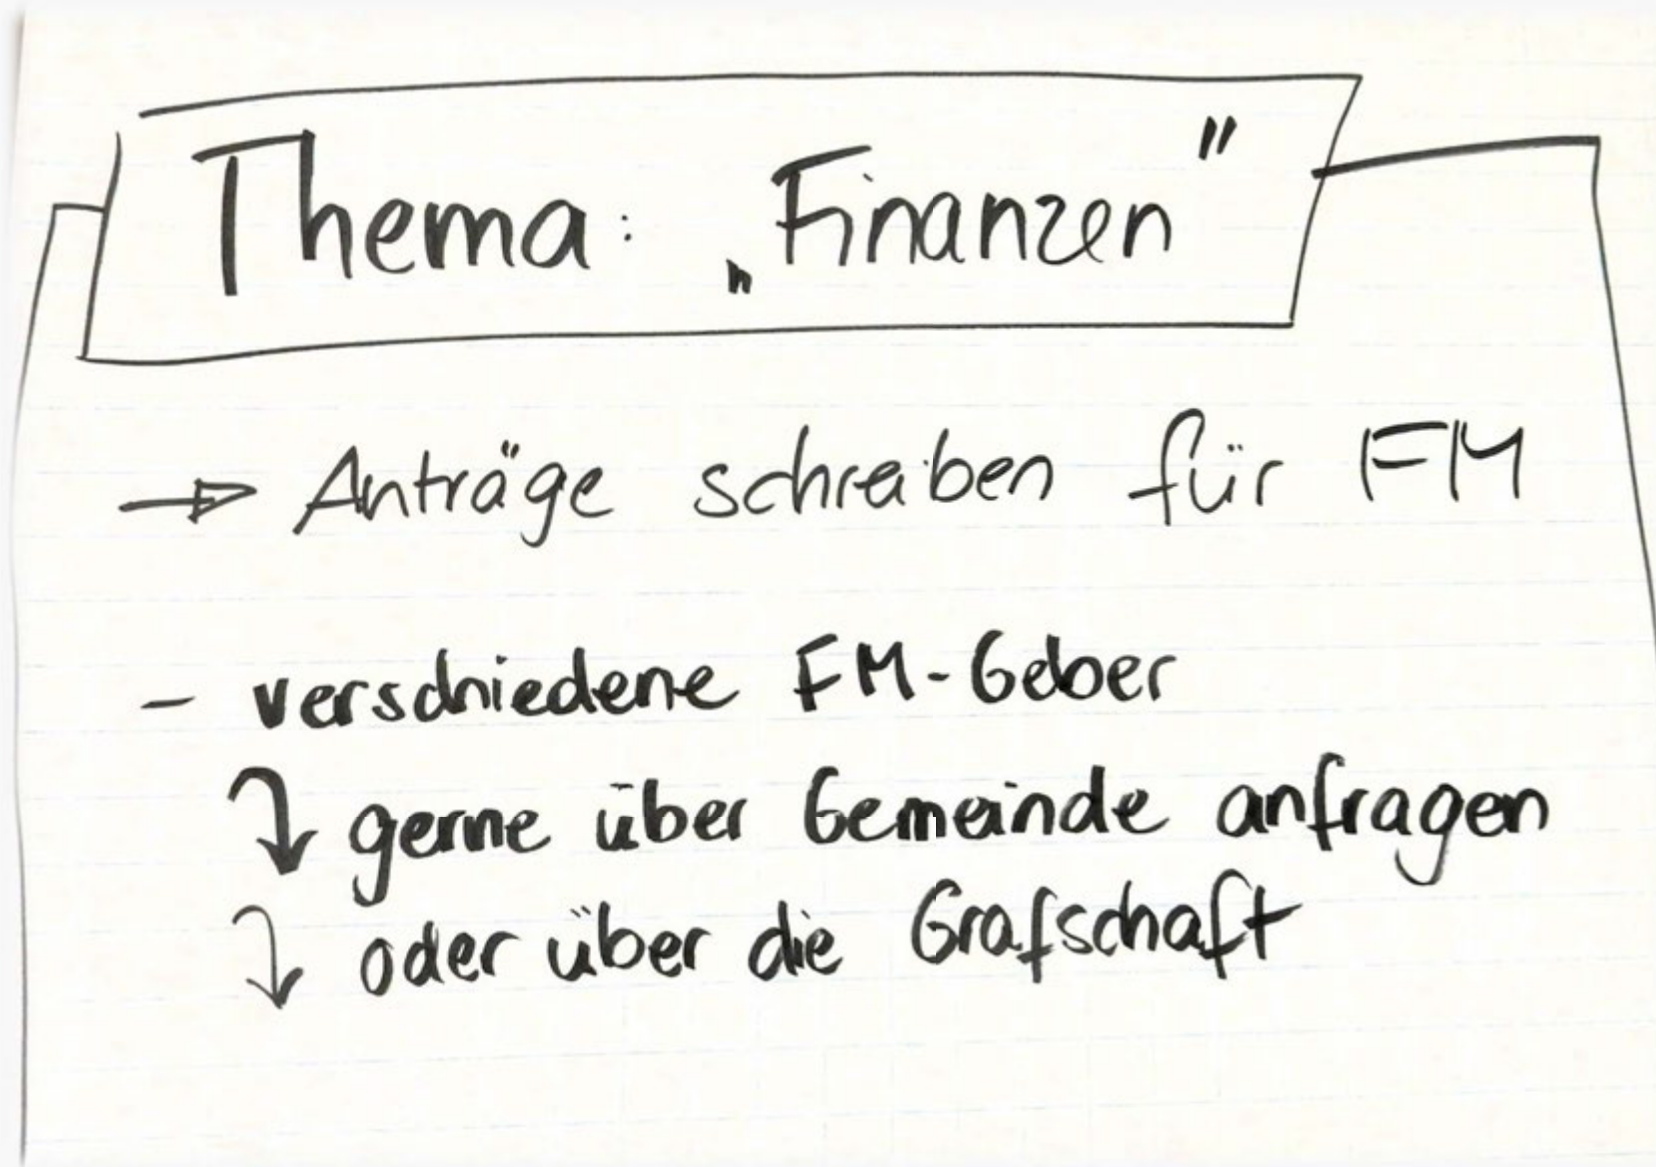 Thema: „Finanzen"
→ Anträge schreiben für FM
- verschiedene FM-Geber
↴ gerne über Gemeinde anfragen
↴ oder über die Grafschaft